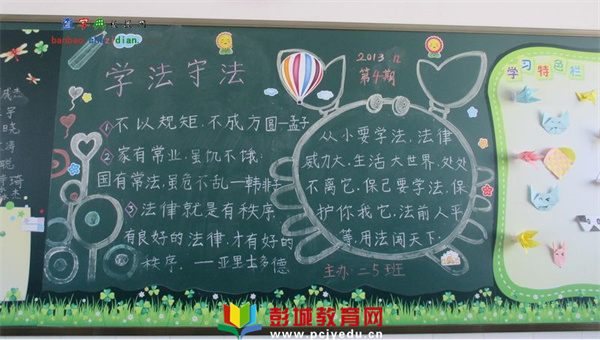 baobao.chazidian
学法守法
①不以规矩,不成方圆—孟子
②家有常业,虽饥不饿;
国有常法,虽危不乱—韩非子
③法律就是有秩序
有良好的法律,才有好的
秩序. —亚里士多德
2013.12
第4期
从小要学法,法律
威力大.生活大世界.处处
不离它.保己要学法.保
护你我它.法前人平
等.用法闯天下.
主办:二5班
学习特色栏
彭城教育网
www.pcjyedu.cn